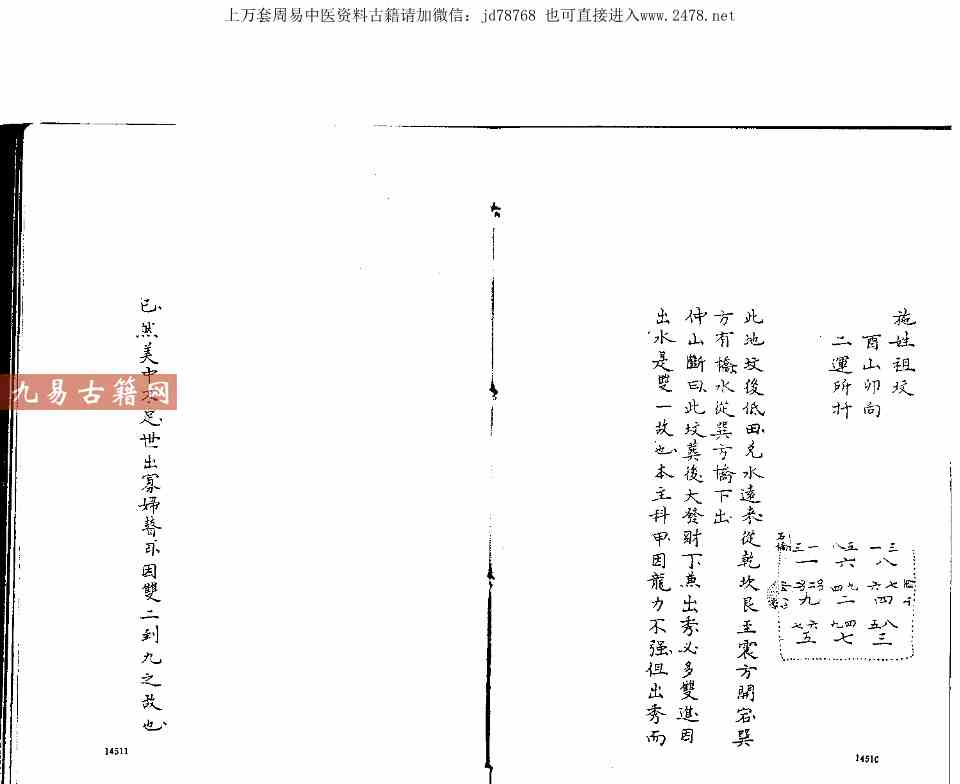 上万套周易中医资料古籍请加微信：jd78768 也可直接进入www.2478.net
施姓祖坟
酉山卯向
二運所扦
此地坟後低田兌水遠來從乾坎艮至震方開宕巽
方有橋水從巽方橋下出
仲山斷曰此坟葬後大發財丁兼出秀必多雙進因
出水是雙一故也本主科甲因龍力不强但出秀而
三一 八五 一三
一 六 八
四九 六七
九 二 四
七六 九四 五八
五 七 三
已然美中不足世出寡婦瞽目因雙二到九之故也
九易古籍网
14511
1451C